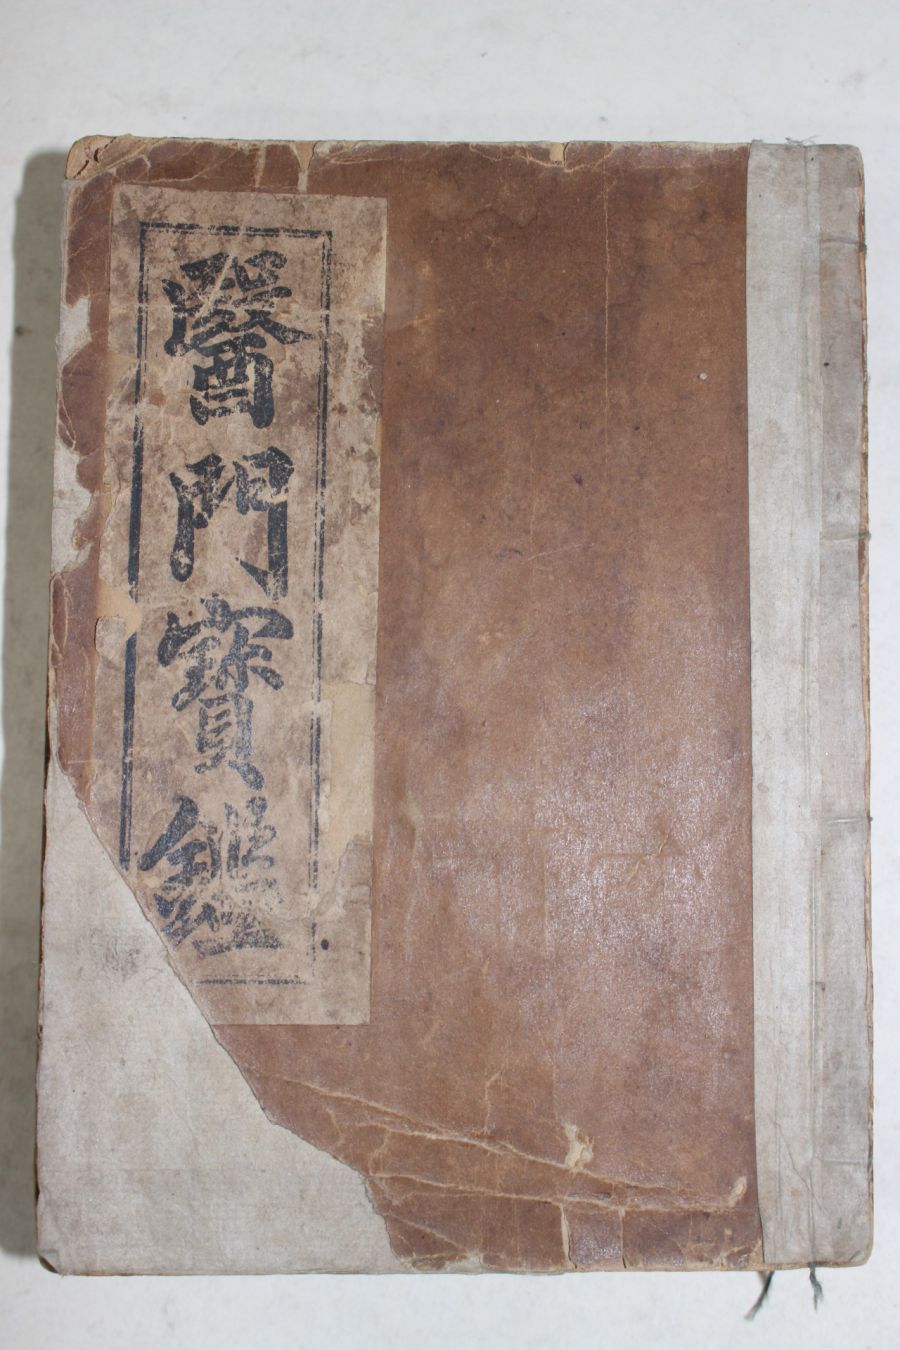 醫門寶鑑